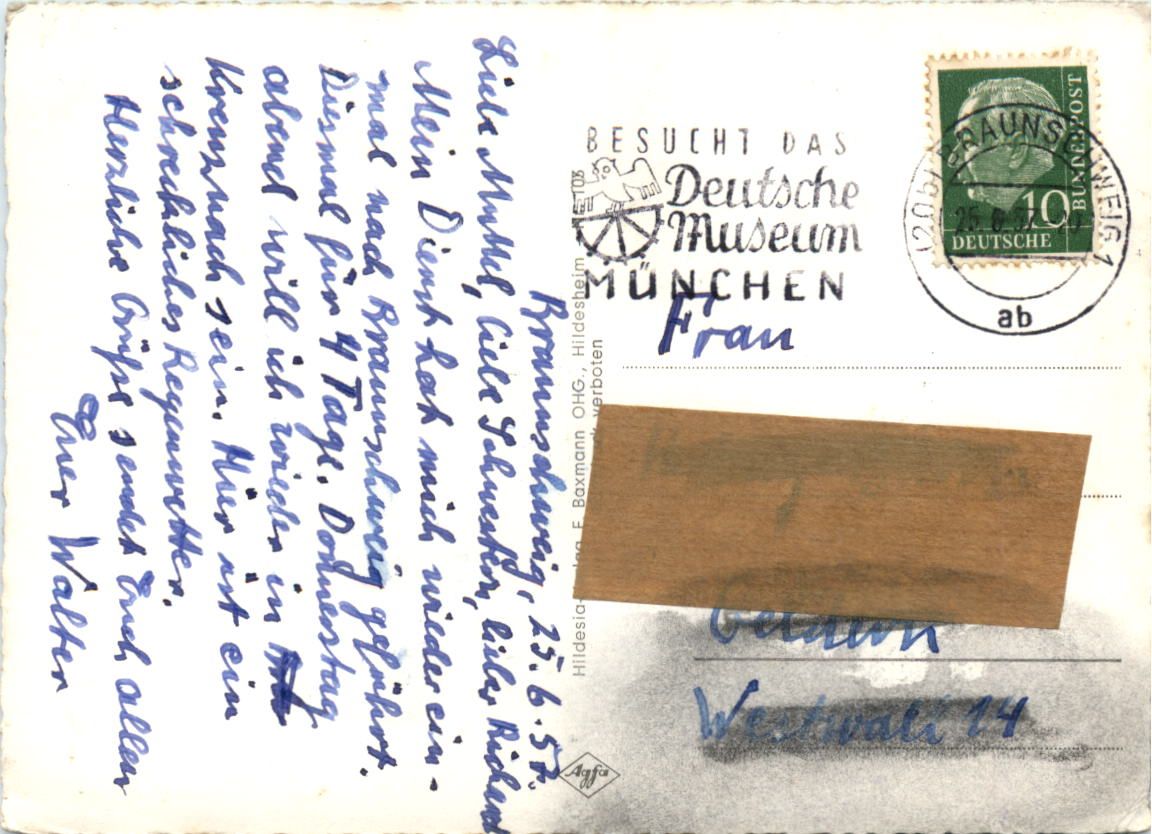 Braunschweig, 25.6.57.
Liebe Muttel, liebe Schwester, lieber Richard
Mein Dienst hat mich wieder ein-
mal nach Braunschweig geführt.
Diesmal für 4 Tage. Donnerstag
abend will ich wieder in
Kreuznach sein. Hier ist ein
schreckliches Regenwetter.
Herzliche Grüße sendet Euch allen
Euer Walter
BESUCHT DAS
Deutsche
Museum
MÜNCHEN
(20b) BRAUNSCHWEIG 1
25.6.57
ab
10
DEUTSCHE
BUNDESPOST
Frau
Geldern
Westwall 14
Hildesia- F. Baxmann OHG., Hildesheim
verboten
Agfa